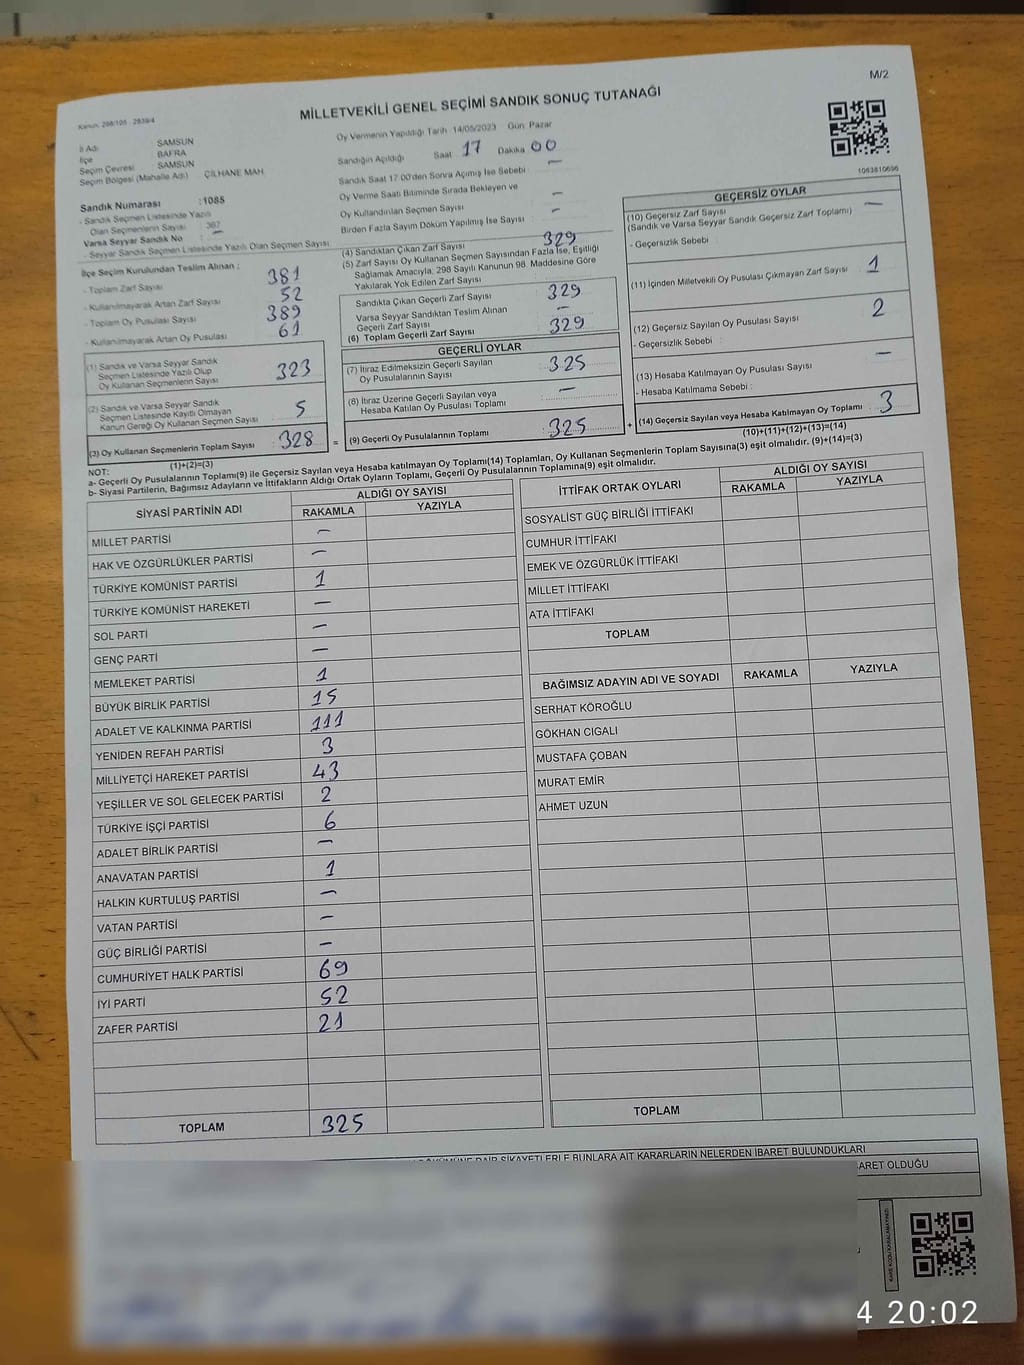 M/2
MİLLETVEKİLİ GENEL SEÇİMİ SANDIK SONUÇ TUTANAĞI
Kanun: 298/105 - 2839/4
İl Adı SAMSUN
İlçe BAFRA
Seçim Çevresi SAMSUN
Seçim Bölgesi (Mahalle Adı) ÇİLHANE MAH.
Sandık Numarası : 1085
- Sandık Seçmen Listesinde Yazılı
Olan Seçmenlerin Sayısı : 367
Varsa Seyyar Sandık No : –
- Seyyar Sandık Seçmen Listesinde Yazılı Olan Seçmen Sayısı
Oy Vermenin Yapıldığı Tarih 14/05/2023 Gün Pazar
Sandığın Açıldığı Saat 17 Dakika 00
Sandık Saat 17:00'den Sonra Açılmış İse Sebebi –
Oy Verme Saati Bitiminde Sırada Bekleyen ve
Oy Kullandırılan Seçmen Sayısı –
Birden Fazla Sayım Döküm Yapılmış İse Sayısı –
1083810696
İlçe Seçim Kurulundan Teslim Alınan :
- Toplam Zarf Sayısı 381
- Kullanılmayarak Artan Zarf Sayısı 52
- Toplam Oy Pusulası Sayısı 389
- Kullanılmayarak Artan Oy Pusulası 61
(1) Sandık ve Varsa Seyyar Sandık
Seçmen Listesinde Yazılı Olup
Oy Kullanan Seçmenlerin Sayısı 323
(2) Sandık ve Varsa Seyyar Sandık
Seçmen Listesinde Kayıtlı Olmayan
Kanun Gereği Oy Kullanan Seçmen Sayısı 5
(3) Oy Kullanan Seçmenlerin Toplam Sayısı 328 =
(1)+(2)=(3)
(4) Sandıktan Çıkan Zarf Sayısı 329
(5) Zarf Sayısı Oy Kullanan Seçmen Sayısından Fazla İse, Eşitliği
Sağlamak Amacıyla, 298 Sayılı Kanunun 98. Maddesine Göre
Yakılarak Yok Edilen Zarf Sayısı
Sandıkta Çıkan Geçerli Zarf Sayısı 329
Varsa Seyyar Sandıktan Teslim Alınan
Geçerli Zarf Sayısı –
(6) Toplam Geçerli Zarf Sayısı 329
GEÇERLİ OYLAR
(7) İtiraz Edilmeksizin Geçerli Sayılan
Oy Pusulalarının Sayısı 325
(8) İtiraz Üzerine Geçerli Sayılan veya
Hesaba Katılan Oy Pusulası Toplamı –
(9) Geçerli Oy Pusulalarının Toplamı 325 +
GEÇERSİZ OYLAR
(10) Geçersiz Zarf Sayısı –
(Sandık ve Varsa Seyyar Sandık Geçersiz Zarf Toplamı)
- Geçersizlik Sebebi :
(11) İçinden Milletvekili Oy Pusulası Çıkmayan Zarf Sayısı 1
(12) Geçersiz Sayılan Oy Pusulası Sayısı 2
- Geçersizlik Sebebi :
(13) Hesaba Katılmayan Oy Pusulası Sayısı –
- Hesaba Katılmama Sebebi :
(14) Geçersiz Sayılan veya Hesaba Katılmayan Oy Toplamı 3
(10)+(11)+(12)+(13)=(14)
NOT:
a- Geçerli Oy Pusulalarının Toplamı(9) ile Geçersiz Sayılan veya Hesaba katılmayan Oy Toplamı(14) Toplamları, Oy Kullanan Seçmenlerin Toplam Sayısına(3) eşit olmalıdır. (9)+(14)=(3)
b- Siyasi Partilerin, Bağımsız Adayların ve İttifakların Aldığı Ortak Oyların Toplamı, Geçerli Oy Pusulalarının Toplamına(9) eşit olmalıdır.
SİYASİ PARTİNİN ADI ALDIĞI OY SAYISI
RAKAMLA YAZIYLA
MİLLET PARTİSİ –
HAK VE ÖZGÜRLÜKLER PARTİSİ –
TÜRKİYE KOMÜNİST PARTİSİ 1
TÜRKİYE KOMÜNİST HAREKETİ –
SOL PARTİ –
GENÇ PARTİ –
MEMLEKET PARTİSİ 1
BÜYÜK BİRLİK PARTİSİ 15
ADALET VE KALKINMA PARTİSİ 111
YENİDEN REFAH PARTİSİ 3
MİLLİYETÇİ HAREKET PARTİSİ 43
YEŞİLLER VE SOL GELECEK PARTİSİ 2
TÜRKİYE İŞÇİ PARTİSİ 6
ADALET BİRLİK PARTİSİ –
ANAVATAN PARTİSİ 1
HALKIN KURTULUŞ PARTİSİ –
VATAN PARTİSİ –
GÜÇ BİRLİĞİ PARTİSİ –
CUMHURİYET HALK PARTİSİ 69
İYİ PARTİ 52
ZAFER PARTİSİ 21
TOPLAM 325
İTTİFAK ORTAK OYLARI ALDIĞI OY SAYISI
RAKAMLA YAZIYLA
SOSYALİST GÜÇ BİRLİĞİ İTTİFAKI
CUMHUR İTTİFAKI
EMEK VE ÖZGÜRLÜK İTTİFAKI
MİLLET İTTİFAKI
ATA İTTİFAKI
TOPLAM
BAĞIMSIZ ADAYIN ADI VE SOYADI RAKAMLA YAZIYLA
SERHAT KÖROĞLU
GÖKHAN CIGALI
MUSTAFA ÇOBAN
MURAT EMİR
AHMET UZUN
TOPLAM
DÖKÜMÜNE DAİR ŞİKAYETLERLE BUNLARA AİT KARARLARIN NELERDEN İBARET BULUNDUKLARI
BARET OLDUĞU
4 20:02